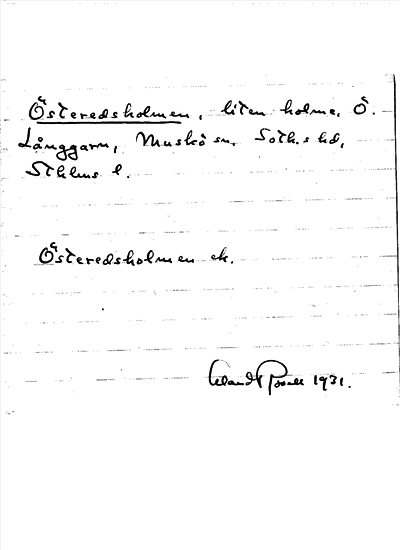 Österedsholmen, liten holme, Ö.
Långgarn, Muskö sn. Soth.s hd,
Sthlms l.
Österedsholmen ek.
1931.